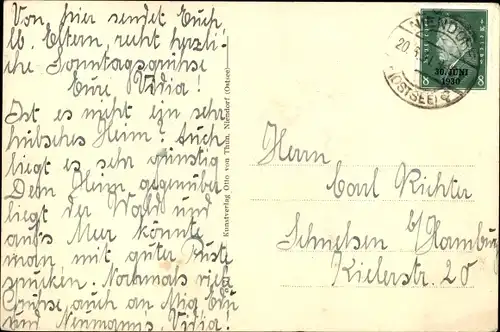 Von hier sendet Euch
lb. Eltern, recht herzli-
che Sonntagsgrüsse
Eure Vidia!
Ist es nicht ein sehr
hübsches Heim? Auch
liegt es sehr günstig
Dem Heim gegenüber
liegt der Wald und
aufs Meer könnte
man mit guter Puste
spucken. Nochmals viele
Grüsse, auch an Mia
und Neumanns, Vidia!
Kunstverlag Otto von Thün, Niendorf (Ostsee)
NIENDORF
(OSTSEE)
8 8
30. JUNI
1930
Herrn
Carl Richter
Schnelsen b/Hamburg
Kielerstr. 20